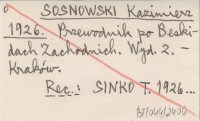 SOSNOWSKI Kazimierz
1926. Przewodnik po Beski-
dach Zachodnich. Wyd. 2. -
Kraków.
Rec.: SINKO T. 1926...